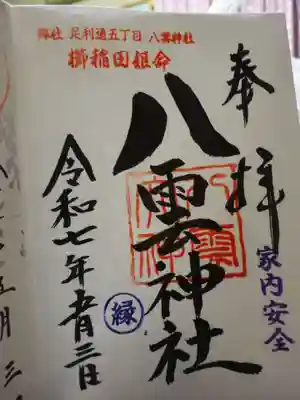 郷社 足利通五丁目 八雲神社
櫛稲田姫命
奉拝
八雲神社
家内安全
縁
令和七年五月三日
五月三